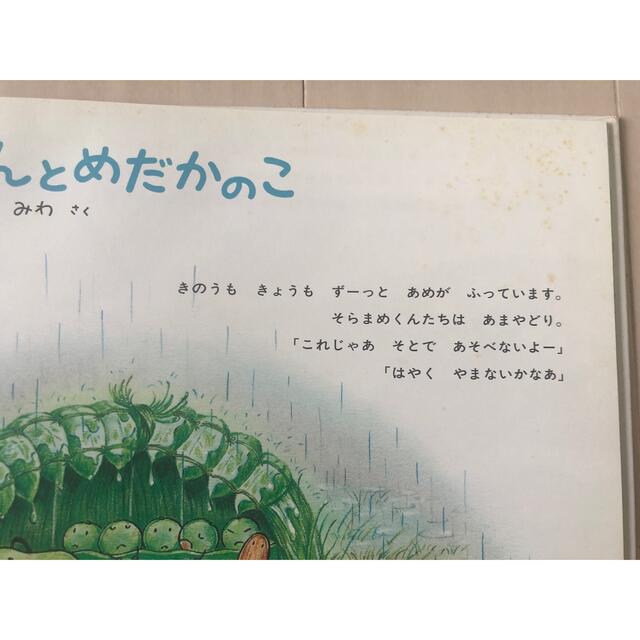 んとめだかのこ
みわ さく
きのうも きょうも ずーっと あめが ふっています。
そらまめくんたちは あまやどり。
「これじゃあ そとで あそべないよー」
「はやく やまないかなあ」